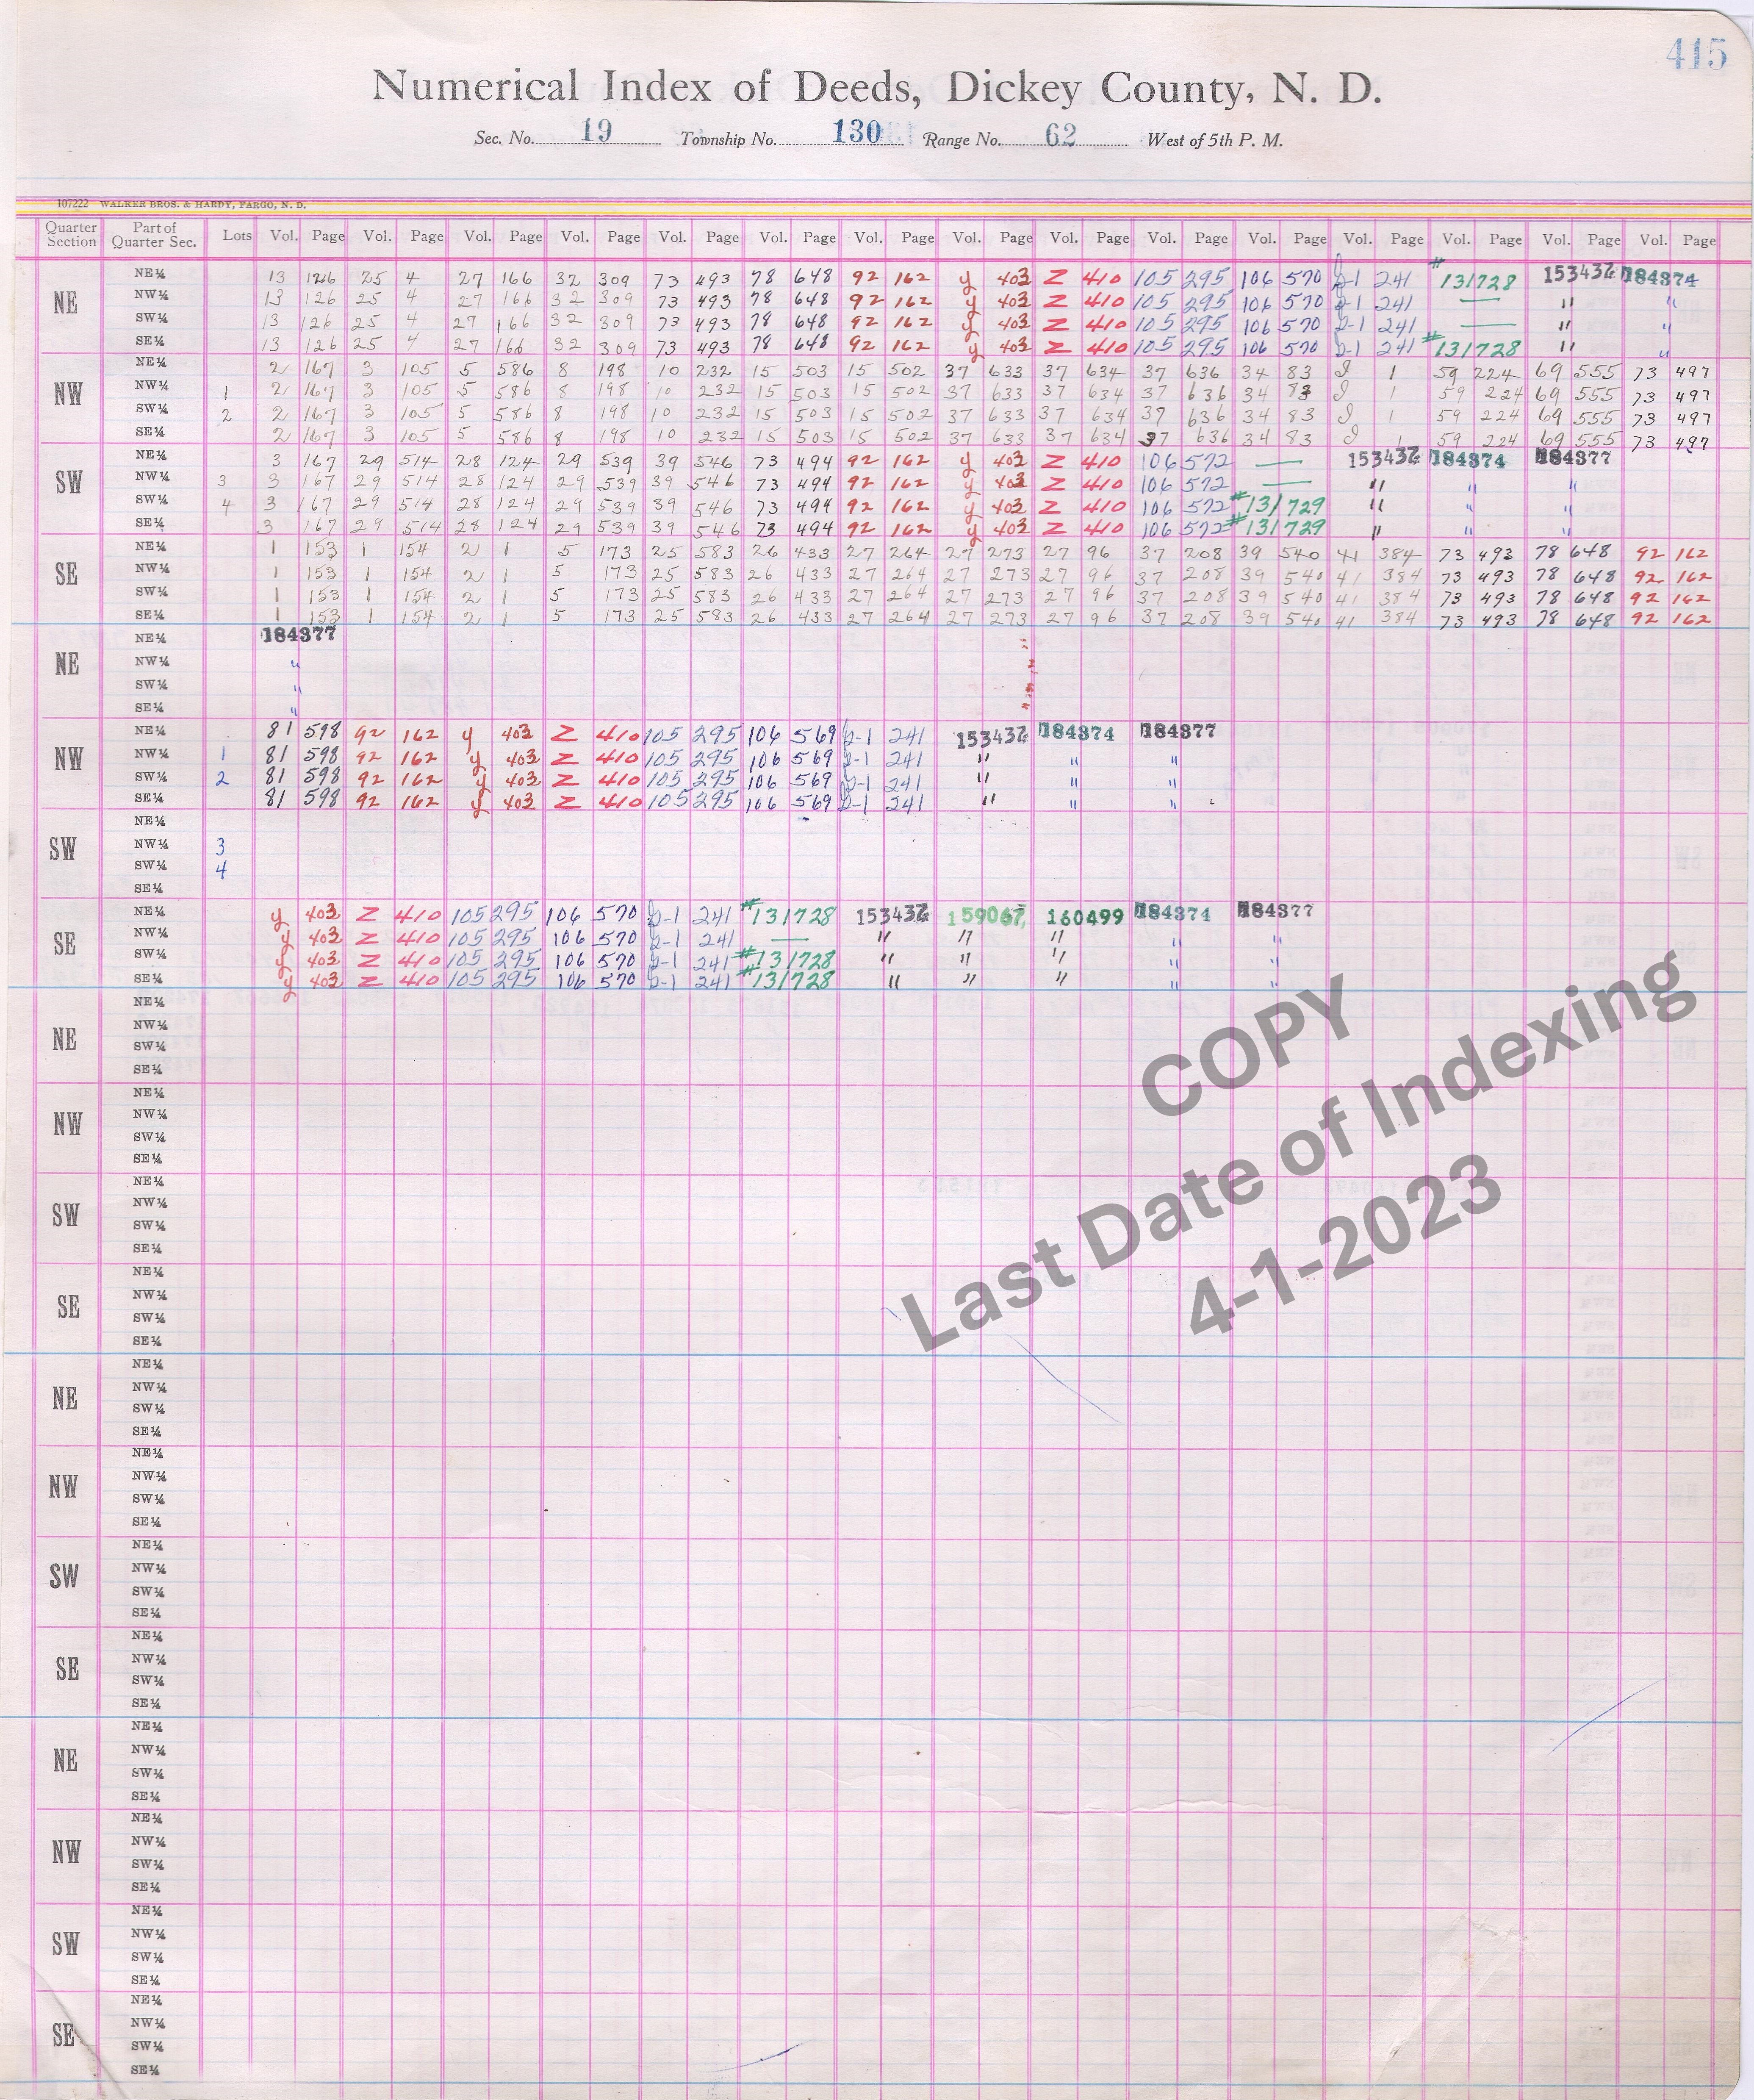 415
Numerical Index of Deeds, Dickey County, N. D.
Sec. No. 19 Township No. 130 Range No. 62 West of 5th P. M.
107222 WALKER BROS. & HARDY, FARGO, N. D.
Quarter Section Part of Quarter Sec. Lots Vol. Page Vol. Page Vol. Page Vol. Page Vol. Page Vol. Page Vol. Page Vol. Page Vol. Page Vol. Page Vol. Page Vol. Page Vol. Page Vol. Page Vol. Page
NE
NE¼ 13 126 25 4 27 166 32 309 73 493 78 648 92 162 y 403 Z 410 105 295 106 570 2-1 241 #131728 153437 184374
NW¼ 13 126 25 4 27 166 32 309 73 493 78 648 92 162 y 403 Z 410 105 295 106 570 2-1 241 — " "
SW¼ 13 126 25 4 27 166 32 309 73 493 78 648 92 162 y 403 Z 410 105 295 106 570 2-1 241 — " "
SE¼ 13 126 25 4 27 166 32 309 73 493 78 648 92 162 y 403 Z 410 105 295 106 570 2-1 241 #131728 " "
NW
NE¼ 2 167 3 105 5 586 8 198 10 232 15 503 15 502 37 633 37 634 37 636 34 83 I 1 59 224 69 555 73 497
NW¼ 1 2 167 3 105 5 586 8 198 10 232 15 503 15 502 37 633 37 634 37 636 34 83 I 1 59 224 69 555 73 497
SW¼ 2 2 167 3 105 5 586 8 198 10 232 15 503 15 502 37 633 37 634 37 636 34 83 I 1 59 224 69 555 73 497
SE¼ 2 167 3 105 5 586 8 198 10 232 15 503 15 502 37 633 37 634 37 636 34 83 I 1 59 224 69 555 73 497
SW
NE¼ 3 167 29 514 28 124 29 539 39 546 73 494 92 162 y 403 Z 410 106 572 — 153437 184374 184377
NW¼ 3 3 167 29 514 28 124 29 539 39 546 73 494 92 162 y 403 Z 410 106 572 — " " "
SW¼ 4 3 167 29 514 28 124 29 539 39 546 73 494 92 162 y 403 Z 410 106 572 #131729 " " "
SE¼ 3 167 29 514 28 124 29 539 39 546 73 494 92 162 y 403 Z 410 106 572 #131729 " " "
SE
NE¼ 1 153 1 154 2 1 5 173 25 583 26 433 27 264 27 273 27 96 37 208 39 540 41 384 73 493 78 648 92 162
NW¼ 1 153 1 154 2 1 5 173 25 583 26 433 27 264 27 273 27 96 37 208 39 540 41 384 73 493 78 648 92 162
SW¼ 1 153 1 154 2 1 5 173 25 583 26 433 27 264 27 273 27 96 37 208 39 540 41 384 73 493 78 648 92 162
SE¼ 1 153 1 154 2 1 5 173 25 583 26 433 27 264 27 273 27 96 37 208 39 540 41 384 73 493 78 648 92 162
NE
NE¼ 184377
NW¼ "
SW¼ "
SE¼ "
NW
NE¼ 81 598 92 162 y 403 Z 410 105 295 106 569 2-1 241 153437 184374 184377
NW¼ 1 81 598 92 162 y 403 Z 410 105 295 106 569 2-1 241 " " "
SW¼ 2 81 598 92 162 y 403 Z 410 105 295 106 569 2-1 241 " " "
SE¼ 81 598 92 162 y 403 Z 410 105 295 106 569 2-1 241 " " "
SW
NE¼
NW¼ 3
SW¼ 4
SE¼
SE
NE¼ y 403 Z 410 105 295 106 570 2-1 241 #131728 153437 159067 160499 184374 184377
NW¼ y 403 Z 410 105 295 106 570 2-1 241 — " " " " "
SW¼ y 403 Z 410 105 295 106 570 2-1 241 #131728 " " " " "
SE¼ y 403 Z 410 105 295 106 570 2-1 241 #131728 " " " " "
NE
NE¼
NW¼
SW¼
SE¼
NW
NE¼
NW¼
SW¼
SE¼
SW
NE¼
NW¼
SW¼
SE¼
SE
NE¼
NW¼
SW¼
SE¼
NE
NE¼
NW¼
SW¼
SE¼
NW
NE¼
NW¼
SW¼
SE¼
SW
NE¼
NW¼
SW¼
SE¼
SE
NE¼
NW¼
SW¼
SE¼
NE
NE¼
NW¼
SW¼
SE¼
NW
NE¼
NW¼
SW¼
SE¼
SW
NE¼
NW¼
SW¼
SE¼
SE
NE¼
NW¼
SW¼
SE¼
COPY
Last Date of Indexing
4-1-2023